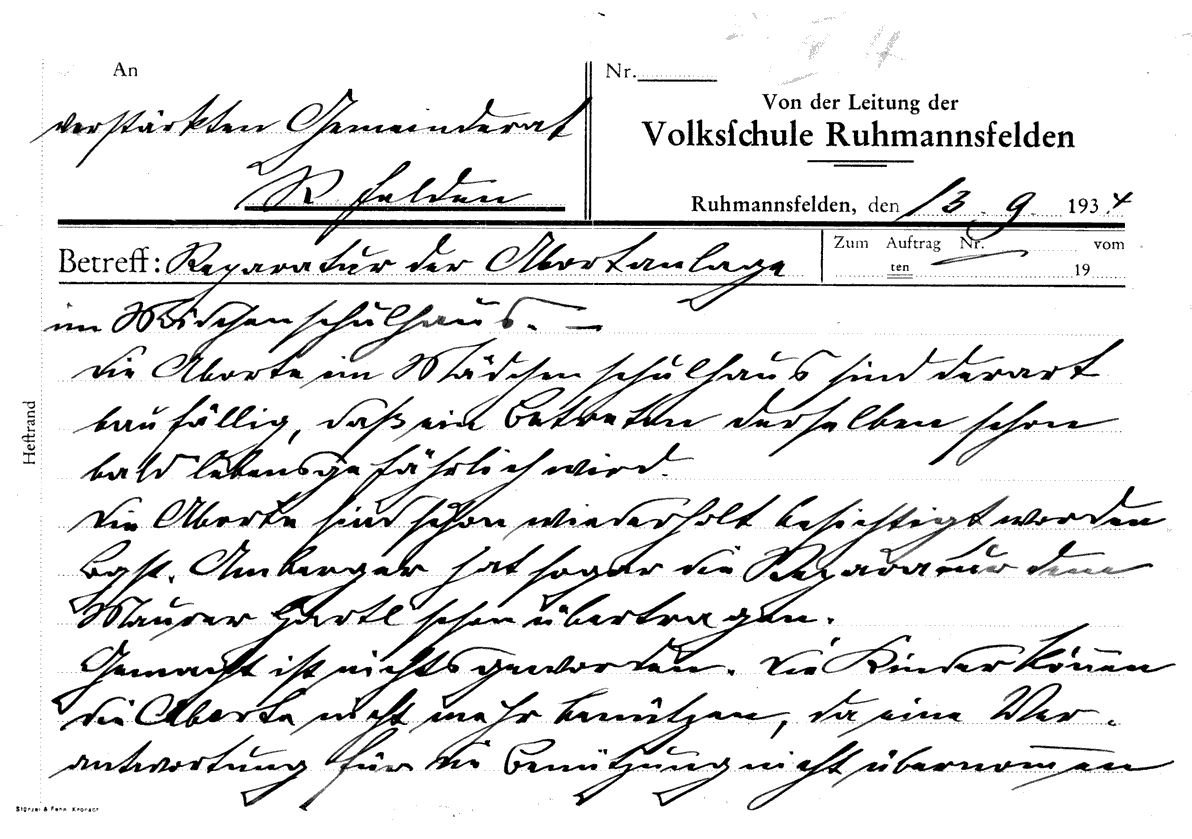 An
verstärkten Gemeinderat
R felden
Nr.
Von der Leitung der
Volksſchule Ruhmannsfelden
Ruhmannsfelden, den 13. 9. 1934
Betreff: Reparatur der Abortanlage
Zum Auftrag Nr. vom
ten 19
im Mädchenschulhaus. —
Die Aborte im Mädchenschulhaus sind derart
baufällig, daß ein Betreten derselben schon
bald lebensgefährlich wird.
Die Aborte sind schon wiederholt besichtigt worden
Bgst. Amberger hat sogar die Reparatur dem
Maurer Hartl schon übertragen.
Gemacht ist nichts geworden. Die Kinder können
die Aborte nicht mehr benützen, da eine Ver-
antwortung für die Benützung nicht übernommen
Heftrand
Stürzel & Fehn, Kronach